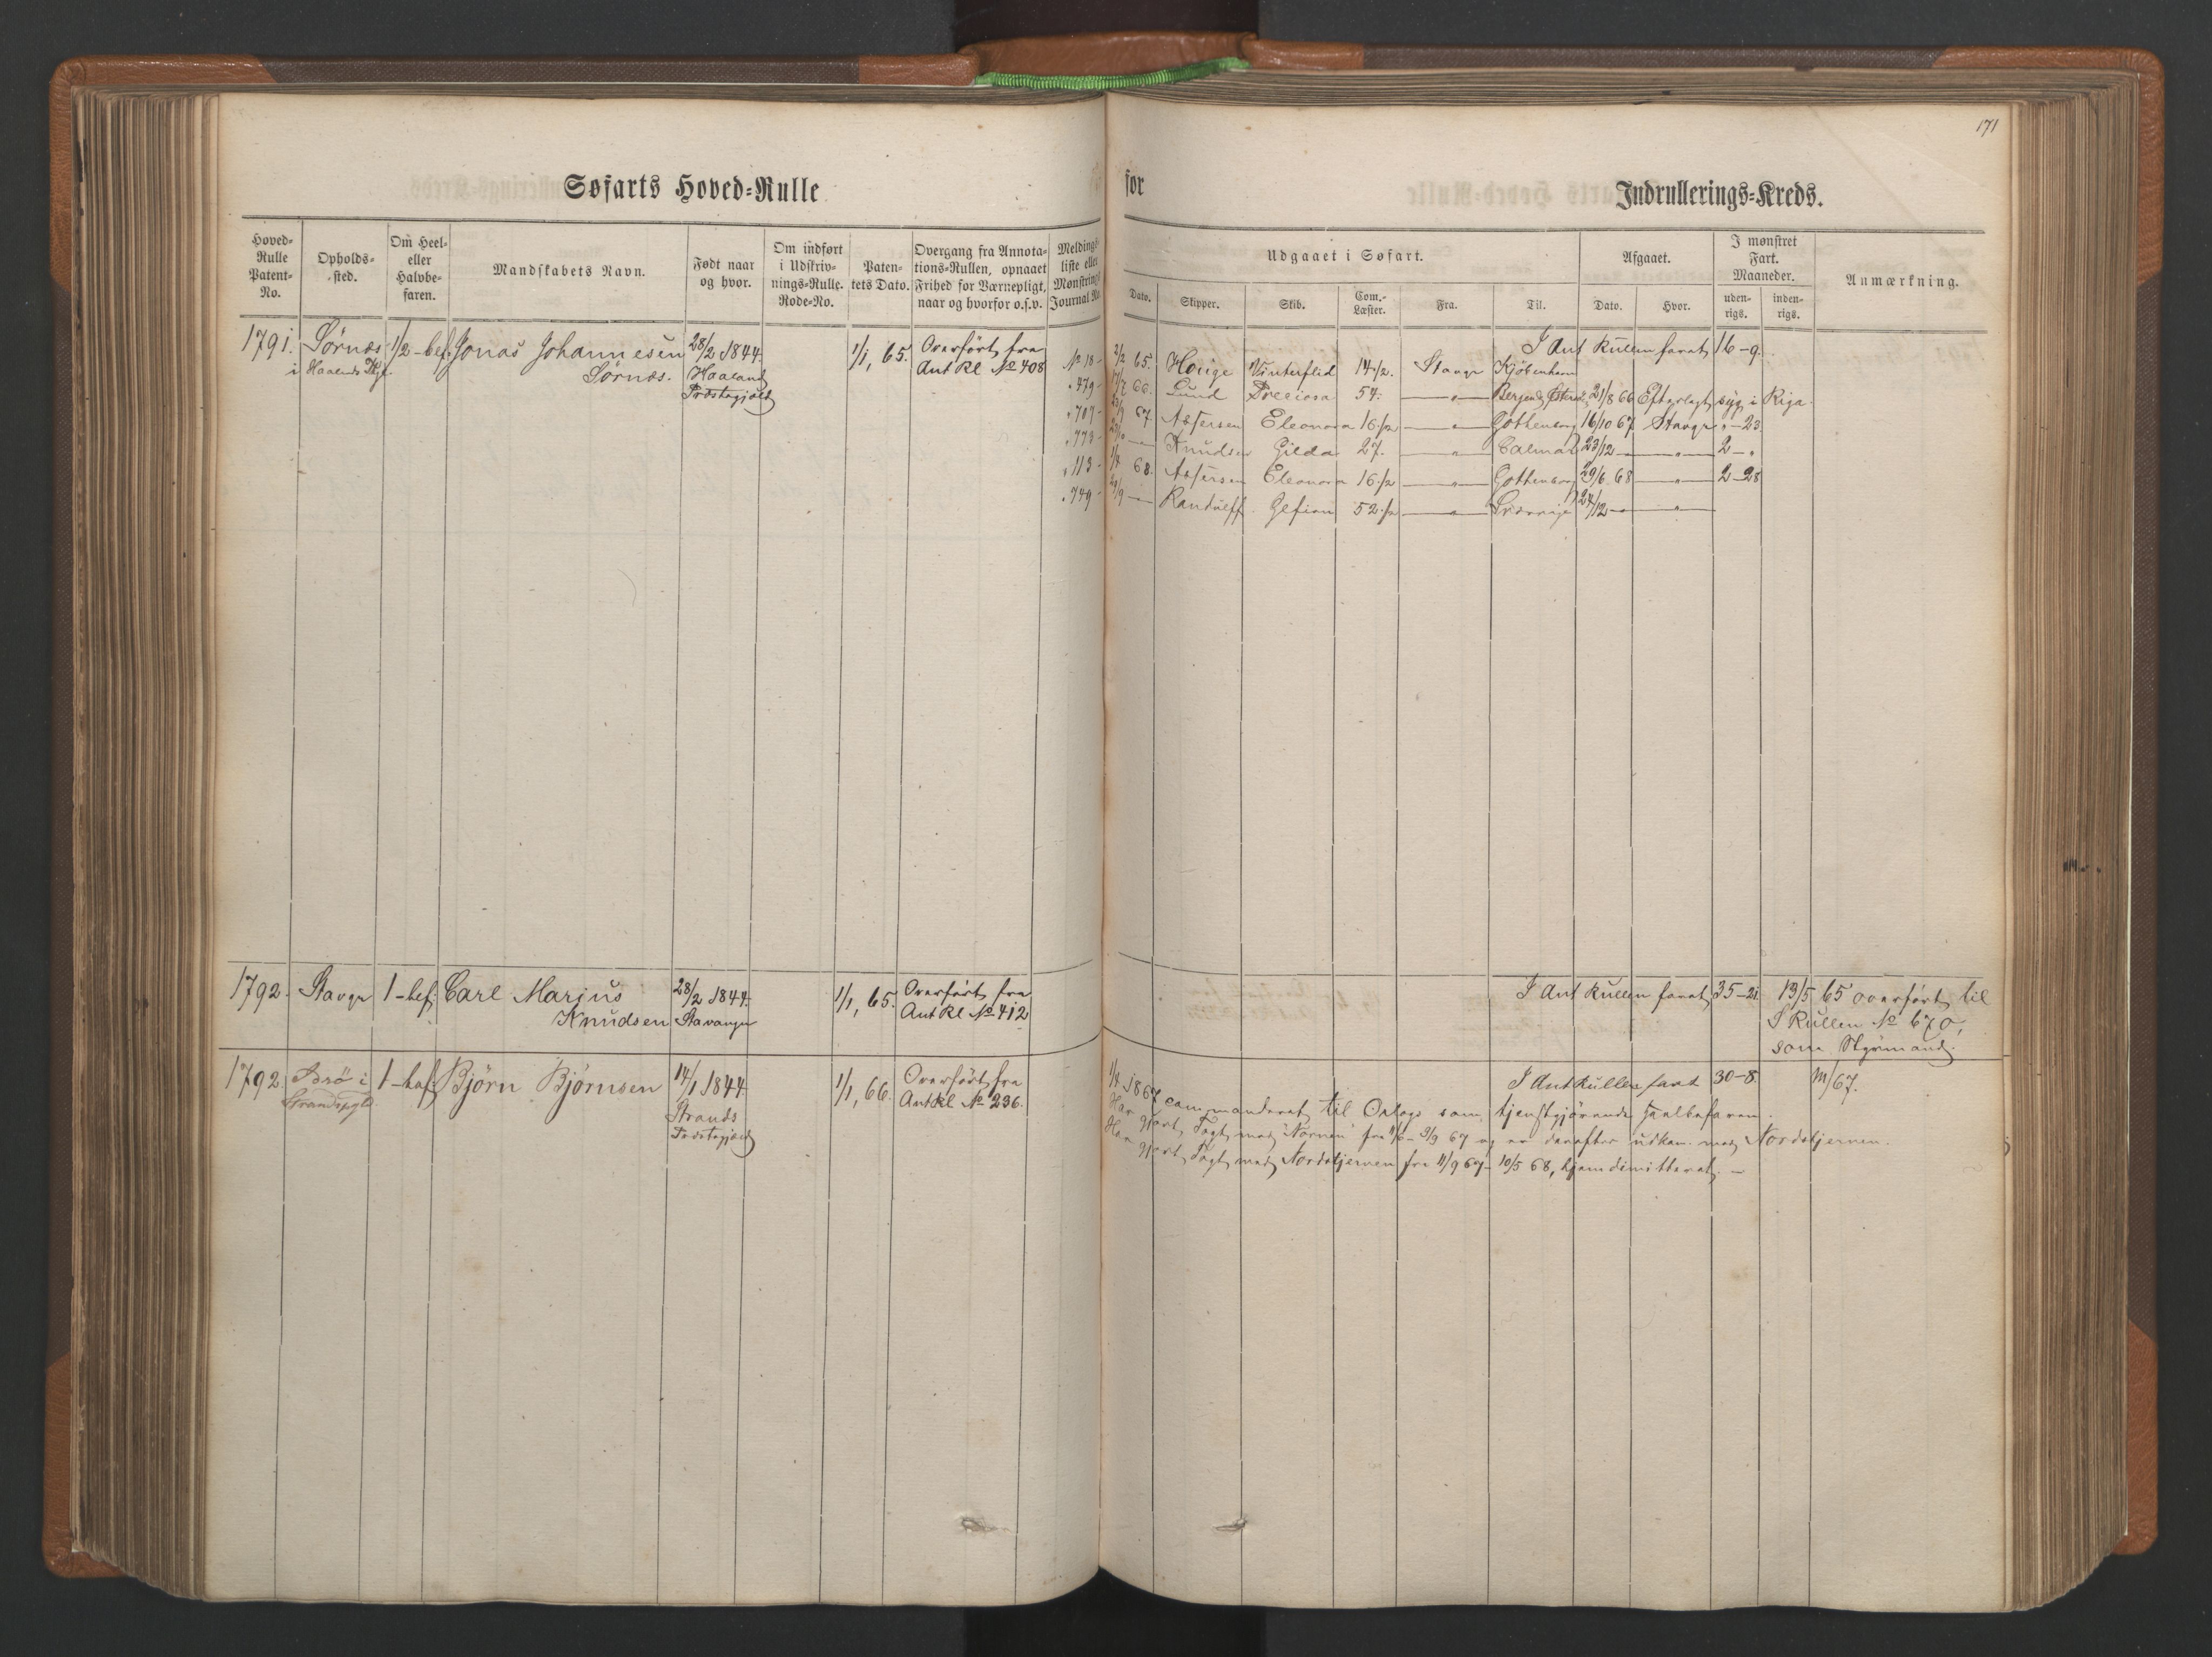 171
Søfarts Hoved-Rulle
for
Indrullerings-Kreds.
Hoved-
Rulle
Patent-
No.
Opholds-
sted.
Om Heel-
eller
Halvbe-
faren.
Mandskabets Navn.
Født naar
og hvor.
Om indført
i Udskriv-
nings-Rulle.
Rode-No.
Paten-
tets Dato.
Overgang fra Annota-
tions-Rullen, opnaaet
Frihed for Værnepligt,
naar og hvorfor o.s.v.
Meldings-
liste eller
Mønstrings
Journal No.
Udgaaet i Søfart.
Dato.
Skipper.
Skib.
Com.-
Læster.
Fra.
Til.
Afgaaet.
Dato.
Hvor.
I mønstret
Fart.
Maaneder.
uden-
rigs.
inden-
rigs.
Anmærkning.
1791. Sörnæs 1/2-bef. Jonas Johannesen 28/2 1844. 1/1, 65. Overført fra
i Haalands Pgl. Sörnæs. Haaland Ant Rl No 408
Præstegjæld
I Ant Rullen faret 16-9.
No 18- 2/2 65. Houge Vinterflid 14 1/2. Stavgr Kjöbenhavn
" 479- 17/7 66. Lund Preciosa 54. —"— Bergen 21/8 66 Efterlagt syg i Riga.
" 707- 67. Assersen Eleonora 16 1/2 —"— Gothenborg 16/10 67 Stavgr "-23.
" 773- — Knudsen Gilda 27. —"— Calmar 23/12 — —"— 2-"
" 113- 1/4 68. Assersen Eleonora 16 1/2 —"— Gothenborg 29/6 68 —"— 2-28
" 749- 29/9 — Randulff Gefion 52 1/2 —"— Sverrige 24/12 — —"—
1792. Stavgr 1-bef. Carl Marius 28/2 1844. 1/1, 65. Overført fra
Knudsen Stavanger Ant Rl No 412
I Ant Rullen faret 35-21. 13/5 65 overført til
S Rullen No 670,
som Styrmand.
1792. Idsö i 1-haf. Björn Björnsen 14/1 1844. 1/1, 66. Overført fra
Strandspgld. Strands Ant Rl No 236.
Præstegjæld
I Ant Rullen faret 30-8. m/67.
1/4 1867 commanderet til Orlogs som tjenstgjörende Halbefaren.
Har gjort Togt med "Nornen" fra 11/6 - 9/9 67 og er derefter udkom. med Nordstjernen.
Har gjort Togt med Nordstjernen fra 11/9 67 - 10/5 68, hjemdimitteret. —